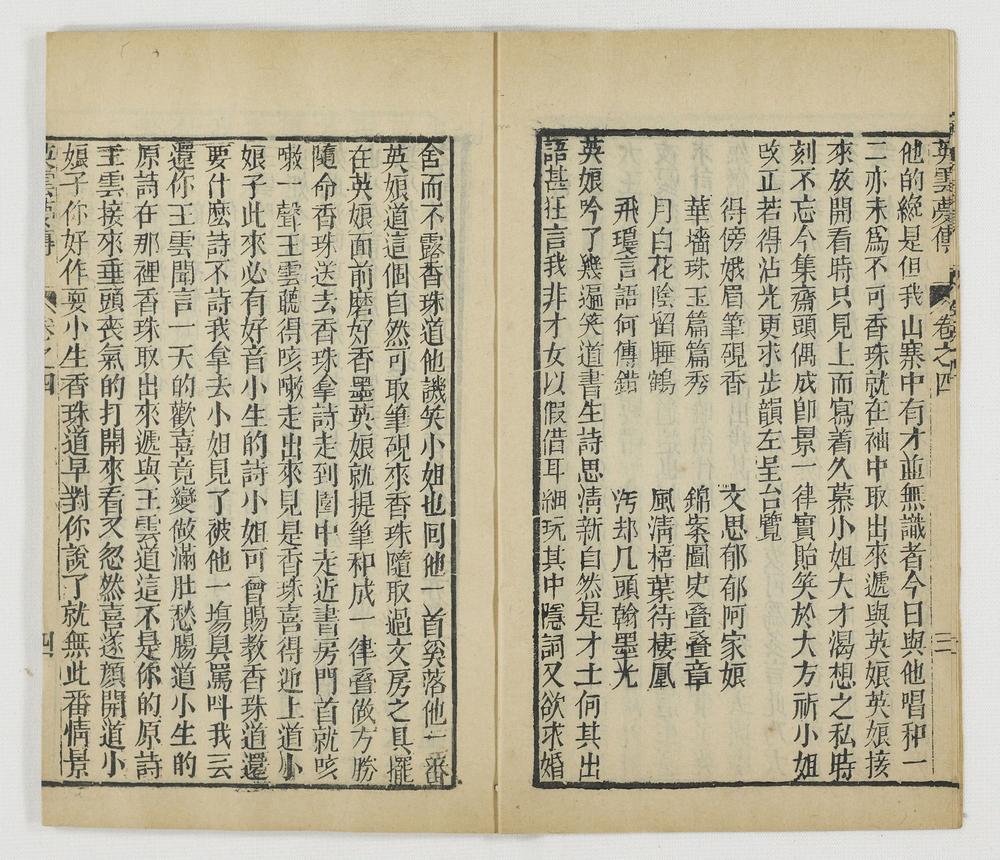 英雲夢傳 卷之四 三
他的纔是但我山寨中有才並無識者今日與他唱和一
二亦未爲不可香珠就在袖中取出來遞與英娘英娘接
來放開看時只見上面寫着久慕小姐大才渴想之私時
刻不忘今集齋頭偶成卽景一律實貽笑於大方祈小姐
改正若得沾光更求步韻左呈台覽
得傍娥眉筆硯香 文思郁郁阿家娘
華墻珠玉篇篇秀 錦案圖史叠叠章
月白花陰留睡鶴 風清梧葉待棲凰
飛瓊言語何傳錯 汚却几頭翰墨光
英娘吟了幾遍笑道書生詩思清新自然是才士何其出
語甚狂言我非才女以假借耳細玩其中隱詞又欲求婚
舍而不露香珠道他譏笑小姐也回他一首奚落他一番
英娘道這個自然可取筆硯來香珠隨取過文房之具擺
在英娘面前磨好香墨英娘就提筆和成一律叠做方勝
隨命香珠送去香珠拿詩走到園中走近書房門首就咳
嗽一聲王雲聽得咳嗽走出來見是香珠喜得迎上道小
娘子此來必有好音小生的詩小姐可曾賜教香珠道還
要什麽詩不詩我拿去小姐見了被他一塲臭罵呌我丟
還你王雲聞言一天的歡喜竟變做滿肚愁腸道小生的
原詩在那裡香珠取出來遞與王雲道這不是你的原詩
王雲接來垂頭喪氣的打開來看又忽然喜逐顏開道小
娘子你好作耍小生香珠道早對你說了就無此番情景
英雲夢傳 卷之四 四